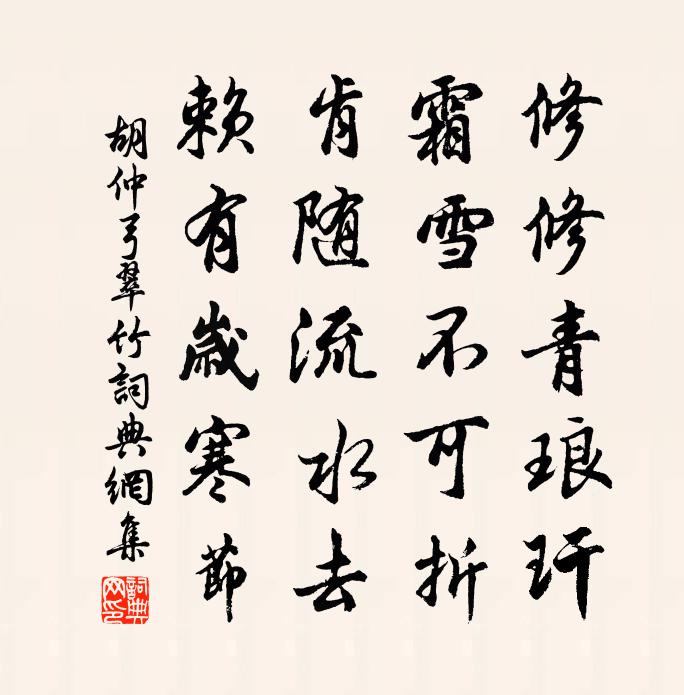 修修青琅玕
霜雪不可折
肯随流水去
赖有歲寒節
胡仲弓翠竹詞典網集
詞典網印